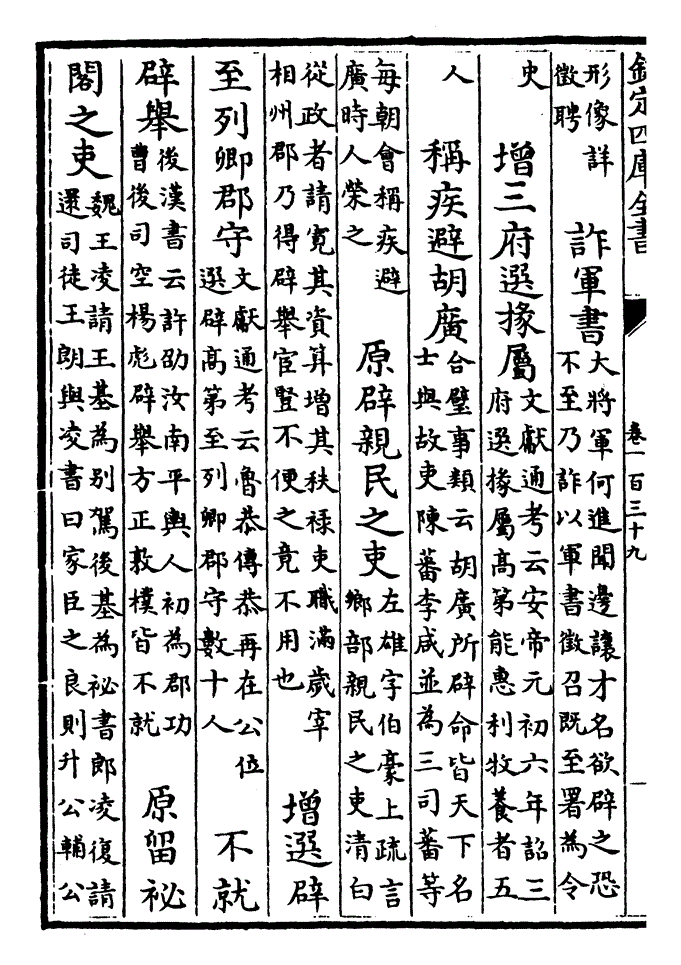 欽定四庫全書
卷一百三十九
形像詳
徵聘
詐軍書
大將軍何進聞邊讓才名欲辟之恐
不至乃詐以軍書徵召既至署為令
史
增三府選掾屬
文獻通考云安帝元初六年詔三
府選掾屬高第能惠利牧養者五
人
稱疾避胡廣
合璧事類云胡廣所辟命皆天下名
士與故吏陳蕃李咸並為三司蕃等
每朝會稱疾避
廣時人榮之
原辟親民之吏
左雄字伯豪上疏言
鄉部親民之吏清白
從政者請寛其資算增其秩祿吏職滿歲宰
相州郡乃得辟舉宦豎不便之竟不用也
增選辟
至列卿郡守
文獻通考云魯恭傳恭再在公位
選辟高第至列卿郡守數十人
不就
辟舉
後漢書云許劭汝南平輿人初為郡功
曹後司空楊彪辟舉方正敦樸皆不就
原留祕
閣之吏
魏王凌請王基為别駕後基為祕書郎凌復請
還司徒王朗與凌書曰家臣之良則升公輔公